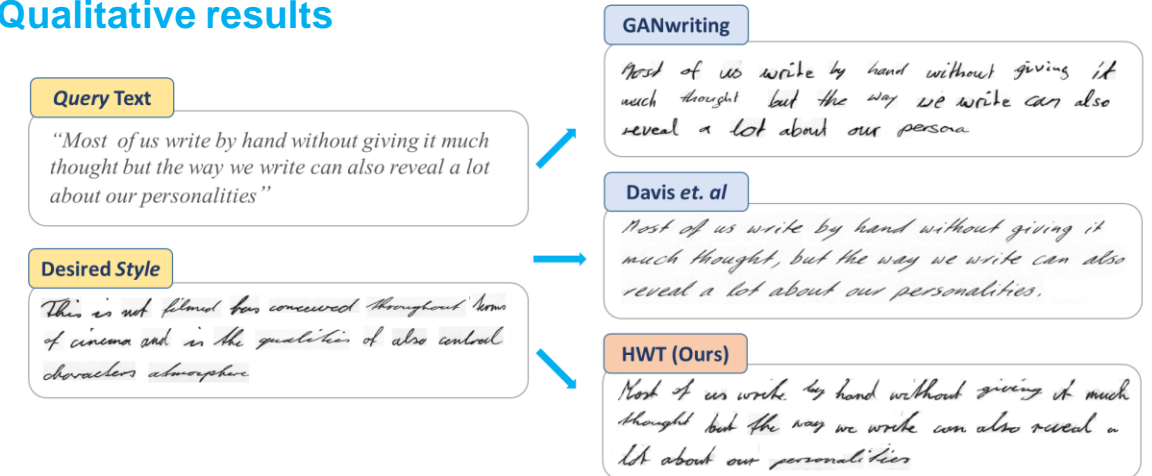 Qualitative results
Query Text
"Most of us write by hand without giving it much
thought but the way we write can also reveal a lot
about our personalities"
Desired Style
This is not filmed has conceived throughout terms
of cinema and in the qualities of also control
characters atmosphere
GANwriting
Most of us write by hand without giving it
much thought but the way we write can also
reveal a lot about our persona
Davis et. al
Most of us write by hand without giving it
much thought, but the way we write can also
reveal a lot about our personalities.
HWT (Ours)
Most of us write by hand without giving it much
thought but the way we write can also reveal a
lot about our personalities